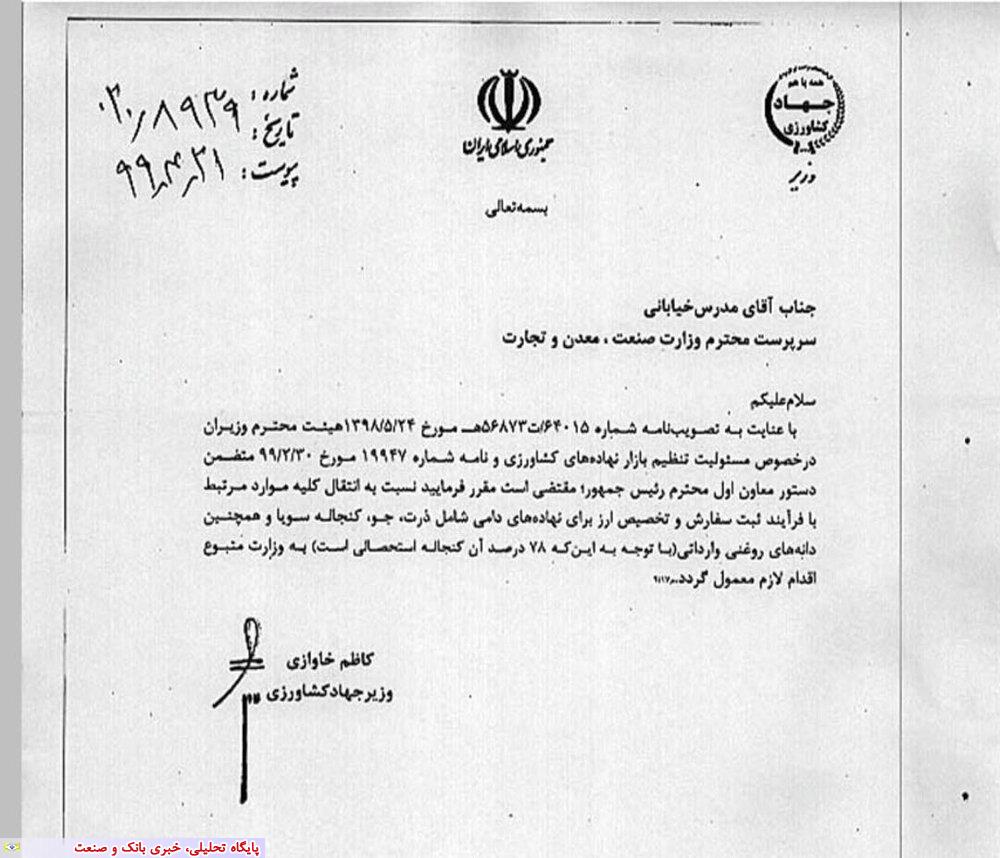 همه با هم
جهاد
کشاورزی
وزیر
جمهوری اسلامی ایران
شماره: ۰۲۰/۸۹۳۹
تاریخ:
پیوست: ۹۹،۴،۲۱
بسمه‌تعالی
جناب آقای مدرس‌خیابانی
سرپرست محترم وزارت صنعت ، معدن و تجارت
سلام‌علیکم
با عنایت به تصویب‌نامه شماره ۶۴۰۱۵/ت۵۶۸۷۳هـ مورخ ۱۳۹۸/۵/۲۴هیئت محترم وزیران
درخصوص مسئولیت تنظیم بازار نهاده‌های کشاورزی و نامه شماره ۱۹۹۴۷ مورخ ۹۹/۲/۳۰ متضمن
دستور معاون اول محترم رئیس جمهور؛ مقتضی است مقرر فرمایید نسبت به انتقال کلیه موارد مرتبط
با فرآیند ثبت سفارش و تخصیص ارز برای نهاده‌های دامی شامل ذرت، جو، کنجاله سویا و همچنین
دانه‌های روغنی وارداتی(با توجه به این‌که ۷۸ درصد آن کنجاله استحصالی است) به وزارت متبوع
اقدام لازم معمول گردد.
کاظم خاوازی
وزیرجهادکشاورزی
پایگاه تحلیلی، خبری بانک و صنعت